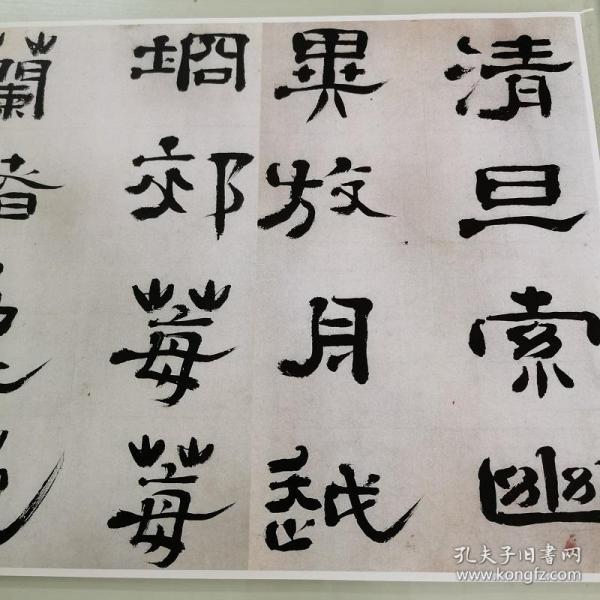 清旦索幽
異放舟越
坰郊莓莓
蘭
孔夫子旧书网
www.kongfz.com